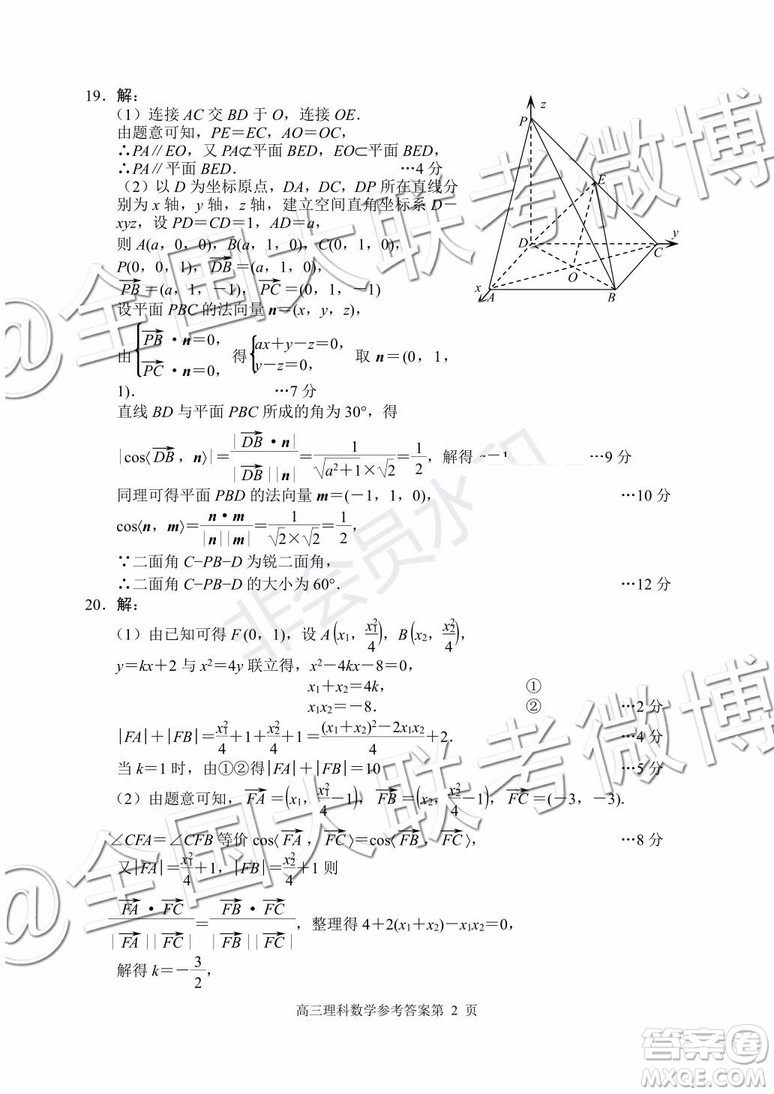 19．解：
（1）连接 AC 交 BD 于 O，连接 OE．
由题意可知，PE＝EC，AO＝OC，
∴PA∥EO，又 PA⊄平面 BED，EO⊂平面 BED，
∴PA∥平面 BED． …4 分
（2）以 D 为坐标原点，DA，DC，DP 所在直线分
别为 x 轴，y 轴，z 轴，建立空间直角坐标系 D－
xyz，设 PD＝CD＝1，AD＝a，
则 A(a，0，0)，B(a，1，0)，C(0，1，0)，
P(0，0，1)，\overrightarrow{DB}＝(a，1，0)，
\overrightarrow{PB}＝(a，1，－1)，\overrightarrow{PC}＝(0，1，－1)
设平面 PBC 的法向量 n＝(x，y，z)，
由{\overrightarrow{PB}·n＝0，\overrightarrow{PC}·n＝0，得{ax＋y－z＝0，y－z＝0，取 n＝(0，1，
1)． …7 分
直线 BD 与平面 PBC 所成的角为 30°，得
|cos⟨\overrightarrow{DB}，n⟩|＝\frac{|\overrightarrow{DB}·n|}{|\overrightarrow{DB}||n|}＝\frac{1}{\sqrt{a^2+1}×\sqrt{2}}＝\frac{1}{2}，解得 …9 分
同理可得平面 PBD 的法向量 m＝(－1，1，0)， …10 分
cos⟨n，m⟩＝\frac{n·m}{|n||m|}＝\frac{1}{\sqrt{2}×\sqrt{2}}＝\frac{1}{2}，
∵二面角 C−PB−D 为锐二面角，
∴二面角 C−PB−D 的大小为 60°． …12 分
z
P
E
D
y
C
O
x
A
B
20．解：
（1）由已知可得 F (0，1)，设 A(x₁，\frac{x_1^2}{4})，B(x₂，\frac{x_2^2}{4})，
y＝kx＋2 与 x²＝4y 联立得，x²－4kx－8＝0，
x₁＋x₂＝4k， ①
x₁x₂＝－8． ② …2 分
|FA|＋|FB|＝\frac{x_1^2}{4}＋1＋\frac{x_2^2}{4}＋1＝\frac{(x_1+x_2)^2-2x_1x_2}{4}＋2． …4 分
当 k＝1 时，由①②得|FA|＋|FB|＝10 …5 分
（2）由题意可知，\overrightarrow{FA}＝(x₁，\frac{x_1^2}{4}－1)，\overrightarrow{FB}＝(x₂，\frac{x_2^2}{4}－1)，\overrightarrow{FC}＝(－3，－3)．
∠CFA＝∠CFB 等价 cos⟨\overrightarrow{FA}，\overrightarrow{FC}⟩＝cos⟨\overrightarrow{FB}，\overrightarrow{FC}⟩， …8 分
又|FA|＝\frac{x_1^2}{4}＋1，|FB|＝\frac{x_2^2}{4}＋1 则
\frac{\overrightarrow{FA}·\overrightarrow{FC}}{|\overrightarrow{FA}||\overrightarrow{FC}|}＝\frac{\overrightarrow{FB}·\overrightarrow{FC}}{|\overrightarrow{FB}||\overrightarrow{FC}|}，整理得 4＋2(x₁＋x₂)－x₁x₂＝0，
解得 k＝－\frac{3}{2}，
高三理科数学参考答案第 2 页
@全国大联考微博
@全国大联考微博
非会员水印
答案圈
MXQE.COM